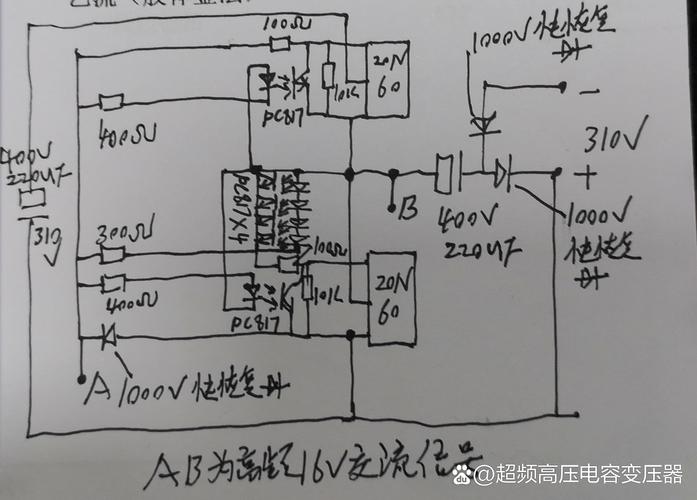 100Ω
1000V 快恢复
20N
60
10K
PC817
400Ω
−
310V
+
400V
220UF
310
V
PC817×4
B
400V
220UF
1000V
快恢复
300Ω
100Ω
400Ω
20N
60
10K
PC817
A 1000V 快恢复
AB为高频16V交流信号
@超频高压电容变压器